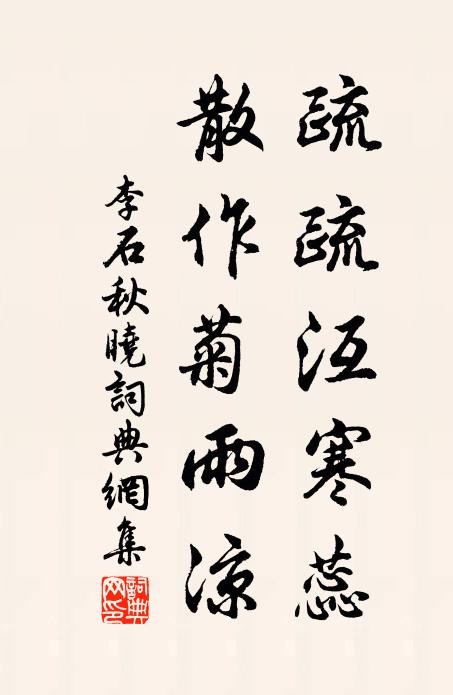 疏疏沍寒蕊
散作菊雨涼
李石秋曉詞典網集
詞典
网印